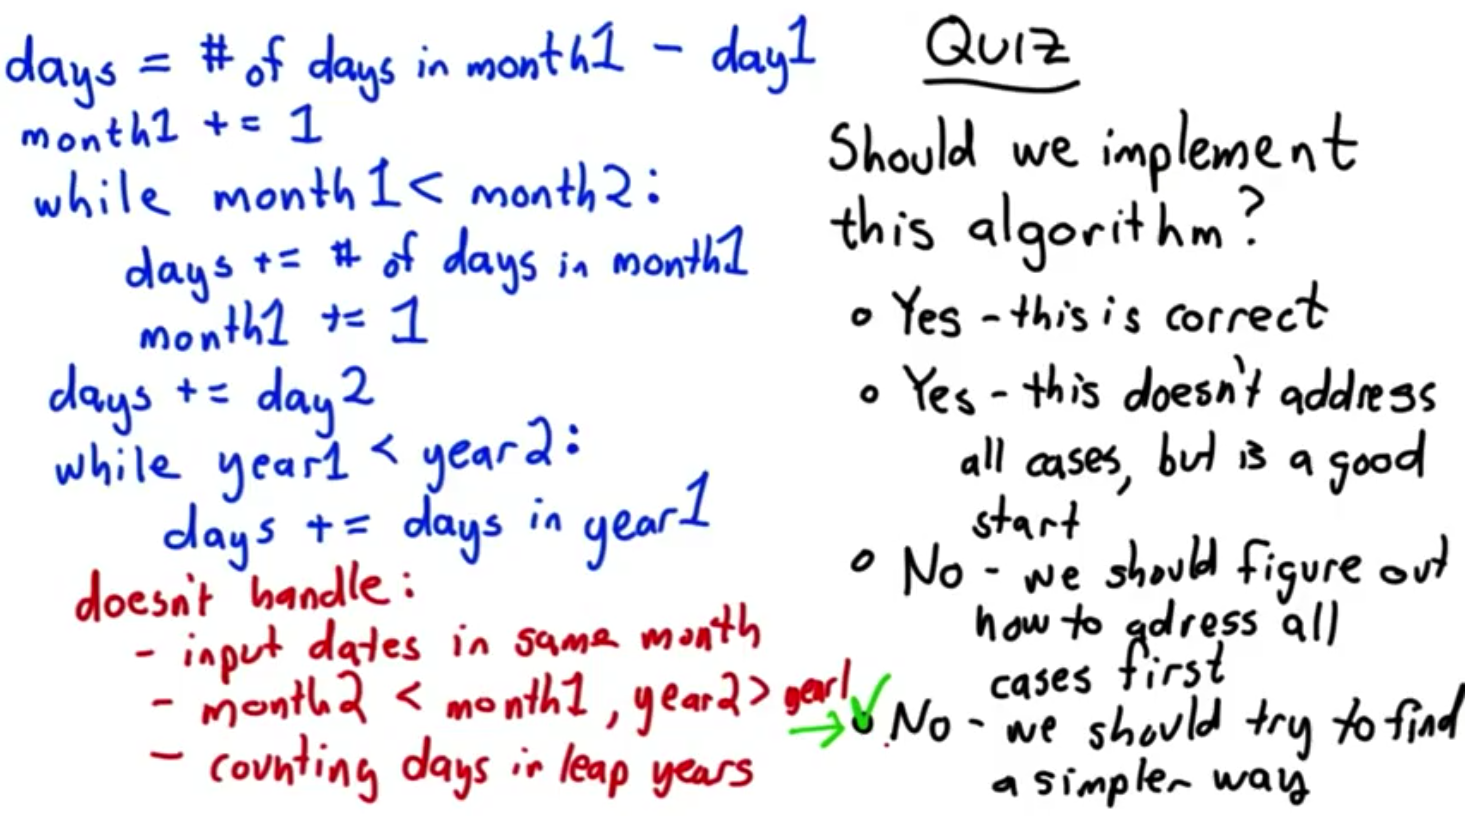 days = # of days in month1 - day1
month1 += 1
while month1 < month2:
days += # of days in month1
month1 += 1
days += day2
while year1 < year2:
days += days in year1
doesn't handle:
- input dates in same month
- month2 < month1, year2 > year1
- counting days in leap years
QUIZ
Should we implement
this algorithm?
Yes - this is correct
Yes - this doesn't address
all cases, but is a good
start
No - we should figure out
how to adress all
cases first
No - we should try to find
a simpler way